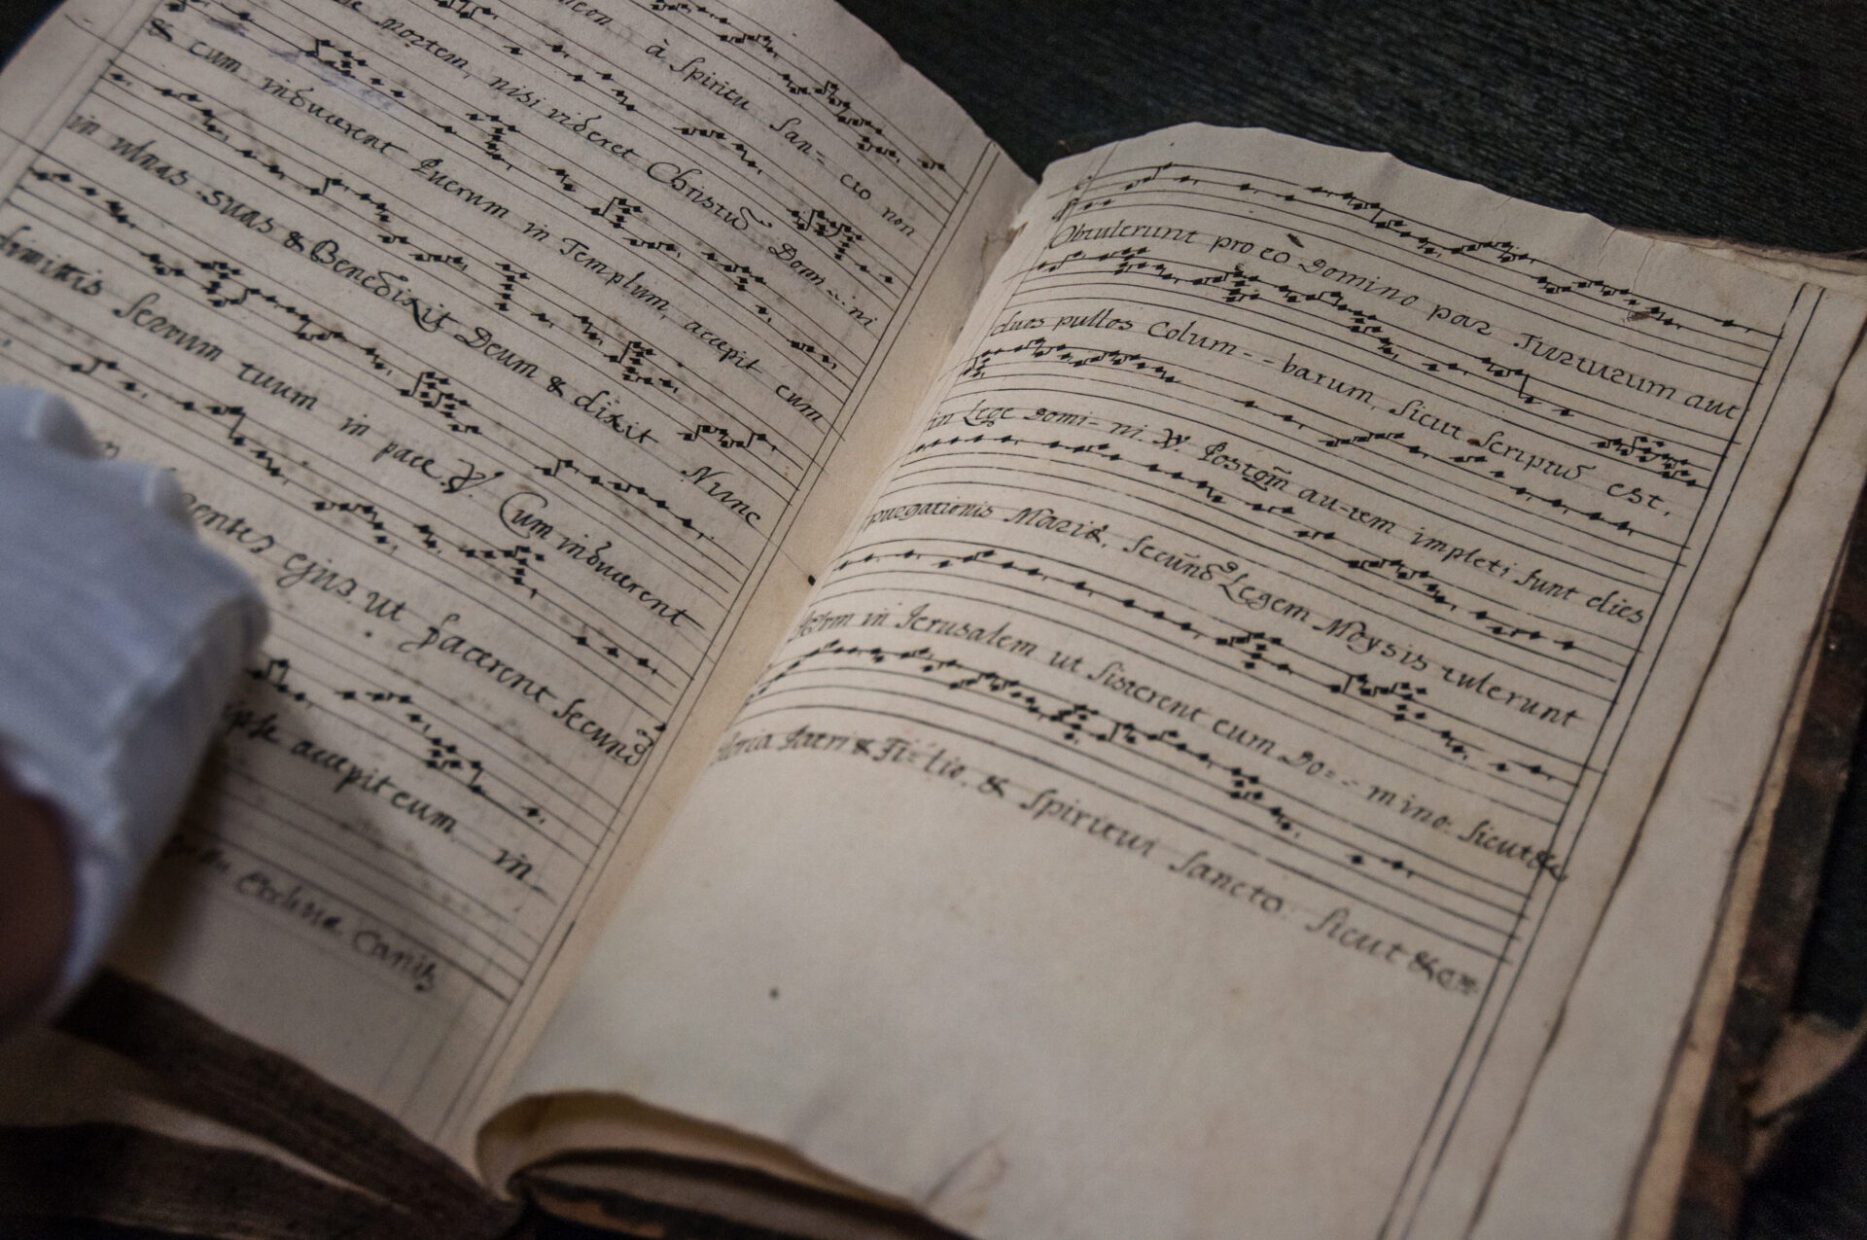 à Spiritu San= cto non
mortem, nisi videret Christũ Domi...ni
& cum inducerent Puerum in Templum, accepit eum
in ulnas suas & Benedixit Deum & dixit Nunc
dimittis Servum tuum in pace. ℣. Cum inducerent
ejus ut facerent Secund
ipse accepit eum in
Ecclesiæ Canit
Obtulerunt pro eò Domino par Turturum aut
duos pullos Colum-- barum, Sicut Scriptũ est,
in Lege Domi-ni. ℣. Postq̃m au-tem impleti sunt dies
purgationis Mariæ, Secũnd Legem Moysis tulerunt
in Jerusalem ut Sisterent eum Do=-mino. Sicut &c.
Gloria Patri & Fi=lio. & Spiritui Sancto. Sicut